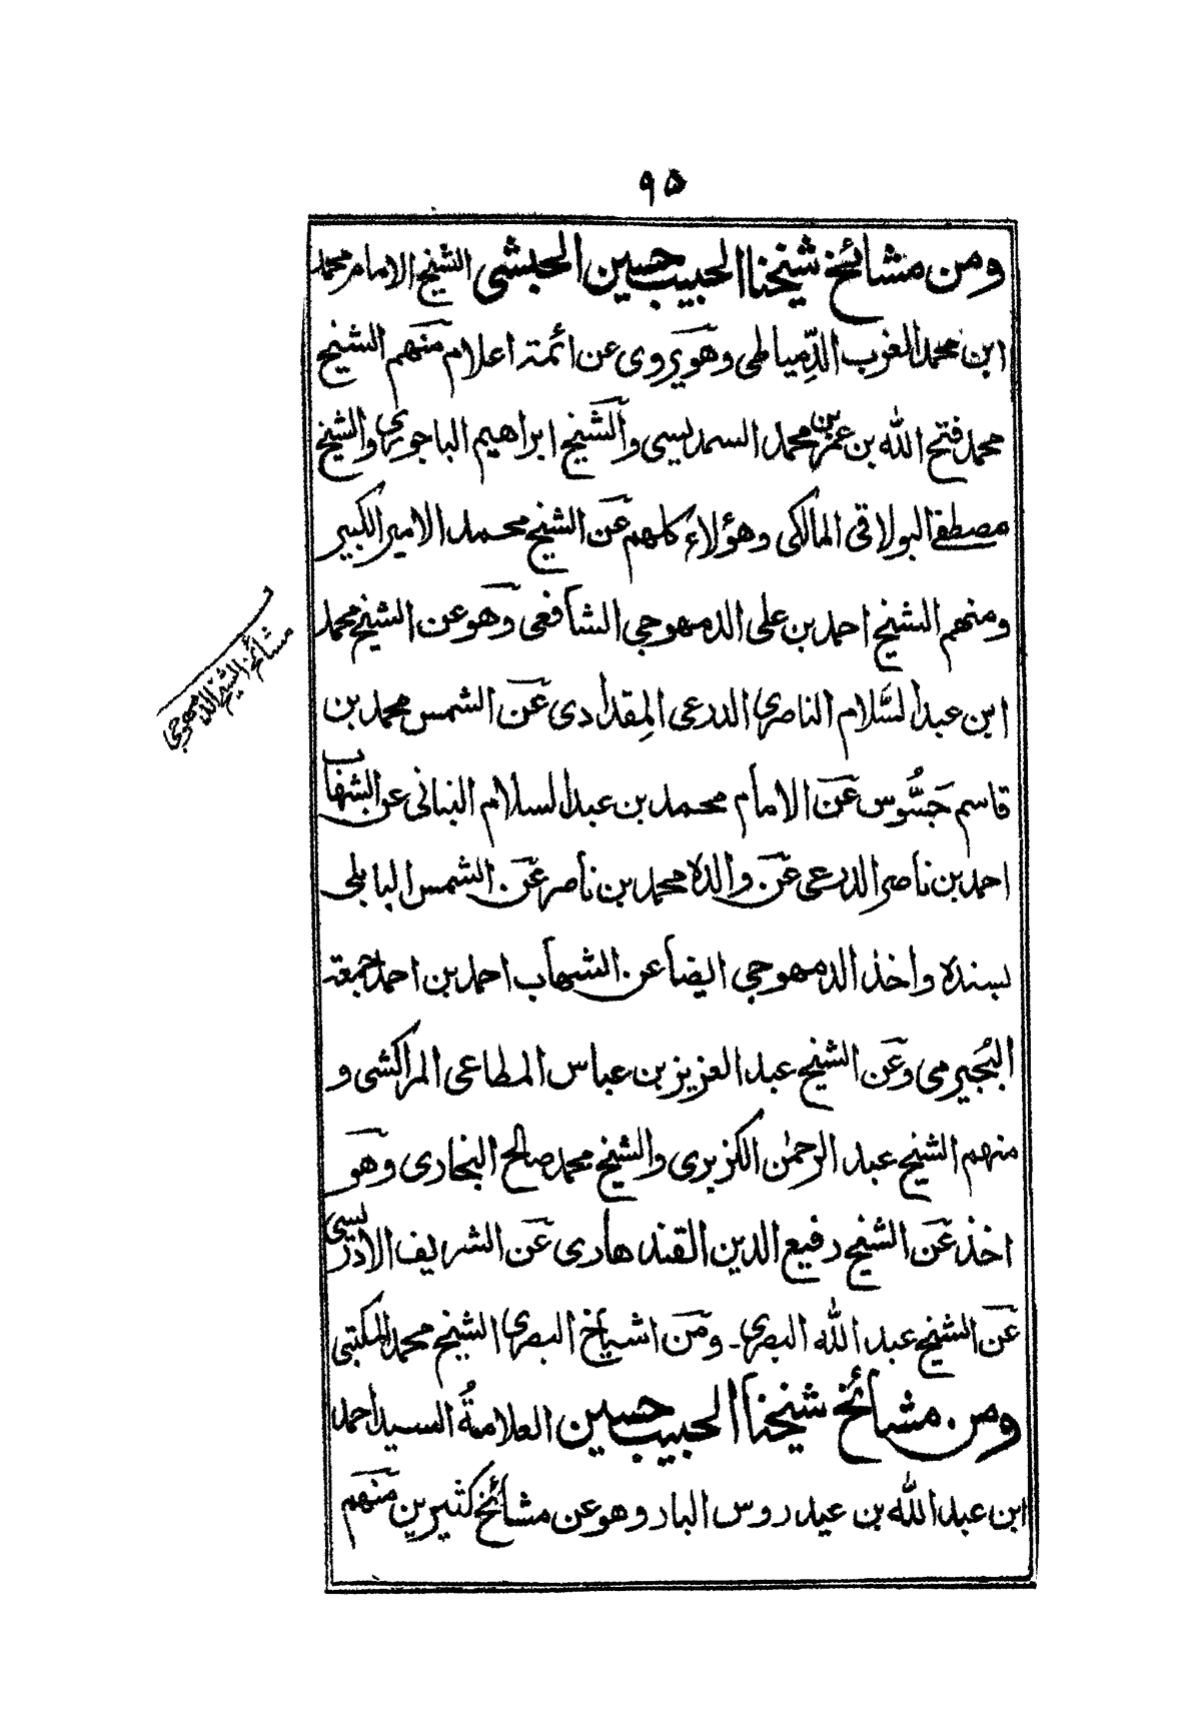 ٩٥
ومن مشائخ شيخنا الحبيب حسين الحبشى الشيخ الامام محمد
ابن محمد العزب الدِّمياطى وهو يروى عن ائمة اعلام منهم الشيخ
محمد فتح الله بن عمر بن محمد السمديسى والشيخ ابراهيم الباجورى والشيخ
مصطفے البولاقى المالكى وهؤلاء كلهم عن الشيخ محمد الامير الكبير
ومنهم الشيخ احمد بن على الدمهوجى الشافعى وهو عن الشيخ محمد
ابن عبد السَّلام الناصرى الدرعى المِقدادى عن الشمس محمد بن
قاسم جَسُّوس عن الامام محمد بن عبد السلام البنانى عن الشهاب
احمد بن ناصر الدرعى عن والده محمد بن ناصر عن الشمس البابلى
بسنده واخذ الدمهوجى ايضا عن الشهاب احمد بن احمد جمعة
البُجيرمى وعن الشيخ عبد العزيز بن عباس المطاعى المراكشى و
منهم الشيخ عبد الرحمٰن الكزبرى والشيخ محمد صالح البخارى وهو
اخذ عن الشيخ رفيع الدين القندهارى عن الشريف الادريسى
عن الشيخ عبد الله البصرى۔ ومن اشياخ البصرى الشيخ محمد المكتبى
ومن مشائخ شيخنا الحبيب حسين العلامةُ السيد احمد
ابن عبد الله بن عيدروس البار وهو عن مشائخ كثيرين منهم
مشائخ الشيخ الدمهوجى